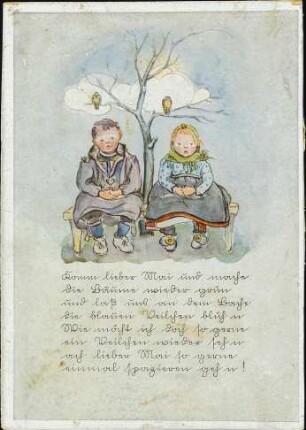 Komm lieber Mai und mache
die Bäume wieder grün
und laß uns an dem Bache
die blauen Veilchen blüh'n
Wie möcht ich doch so gerne
ein Veilchen wieder seh'n
ach lieber Mai so gerne
einmal spazieren geh'n!